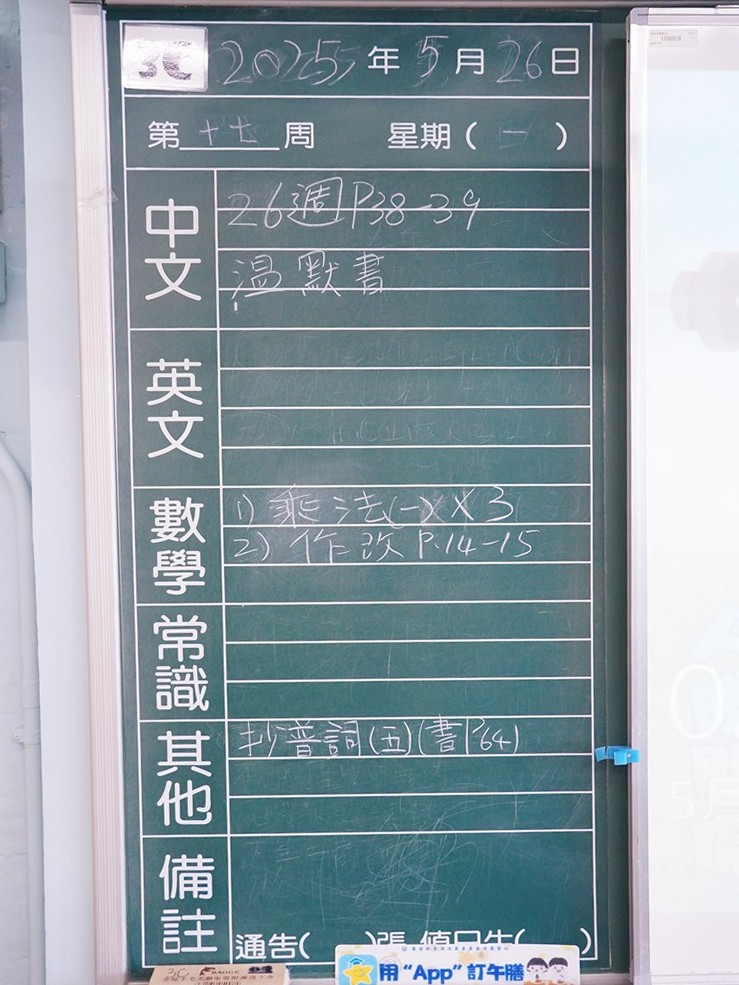 3C 2025年5月26日
第十七周 星期(一)
中文
26週P38-39
温默書
英文
數學
1) 乘法(一)X3
2) 作改 P.14-15
常識
其他
抄普詞(五)(書P64)
備註
通告( )張 值日生( )
3C
用“App”訂午膳